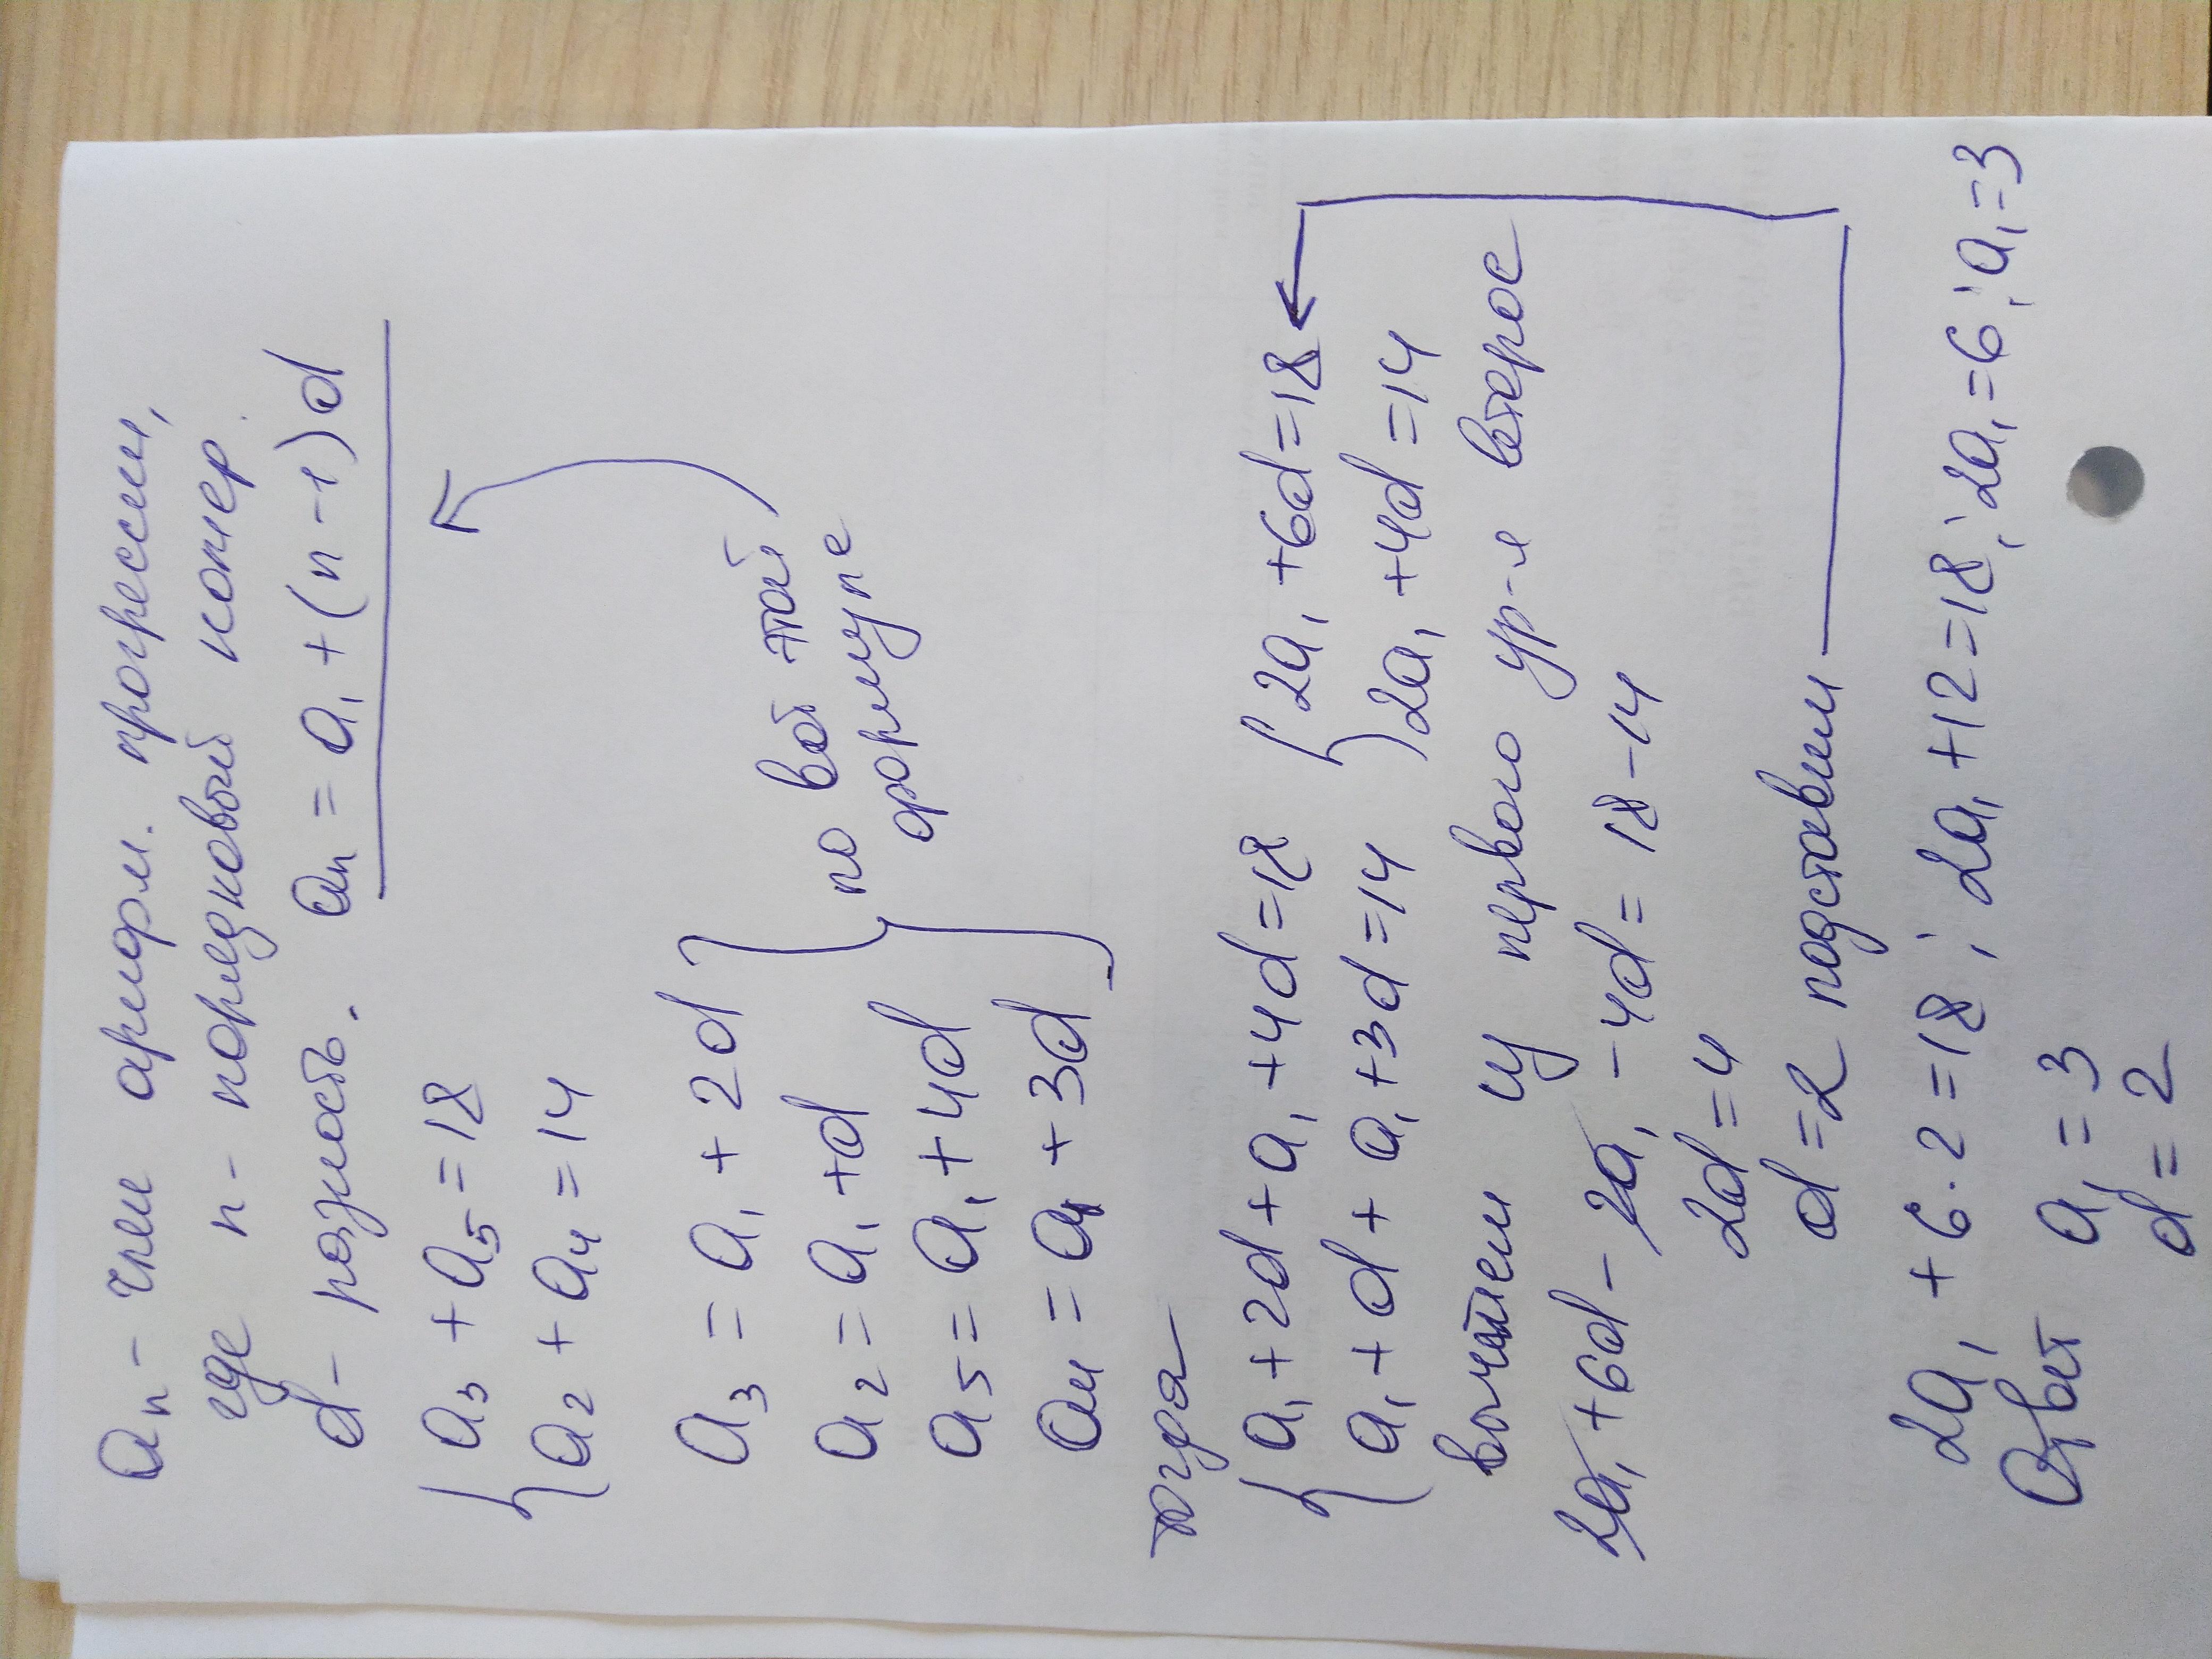 aₙ - член арифм. прогрессии,
где n - порядковый номер.
d - разность. aₙ = a₁ + (n-1)d
{ a₃ + a₅ = 18
a₂ + a₄ = 14
a₃ = a₁ + 2d
a₂ = a₁ + d
a₅ = a₁ + 4d
a₄ = a₁ + 3d
по вот этой
формуле
тогда
{ a₁ + 2d + a₁ + 4d = 18 { 2a₁ + 6d = 18
a₁ + d + a₁ + 3d = 14 2a₁ + 4d = 14
вычтем из первого ур-я второе
2a₁ + 6d - 2a₁ - 4d = 18 - 14
2d = 4
d = 2 подставим
2a₁ + 6·2 = 18; 2a₁ + 12 = 18; 2a₁ = 6; a₁ = 3
Ответ a₁ = 3
d = 2